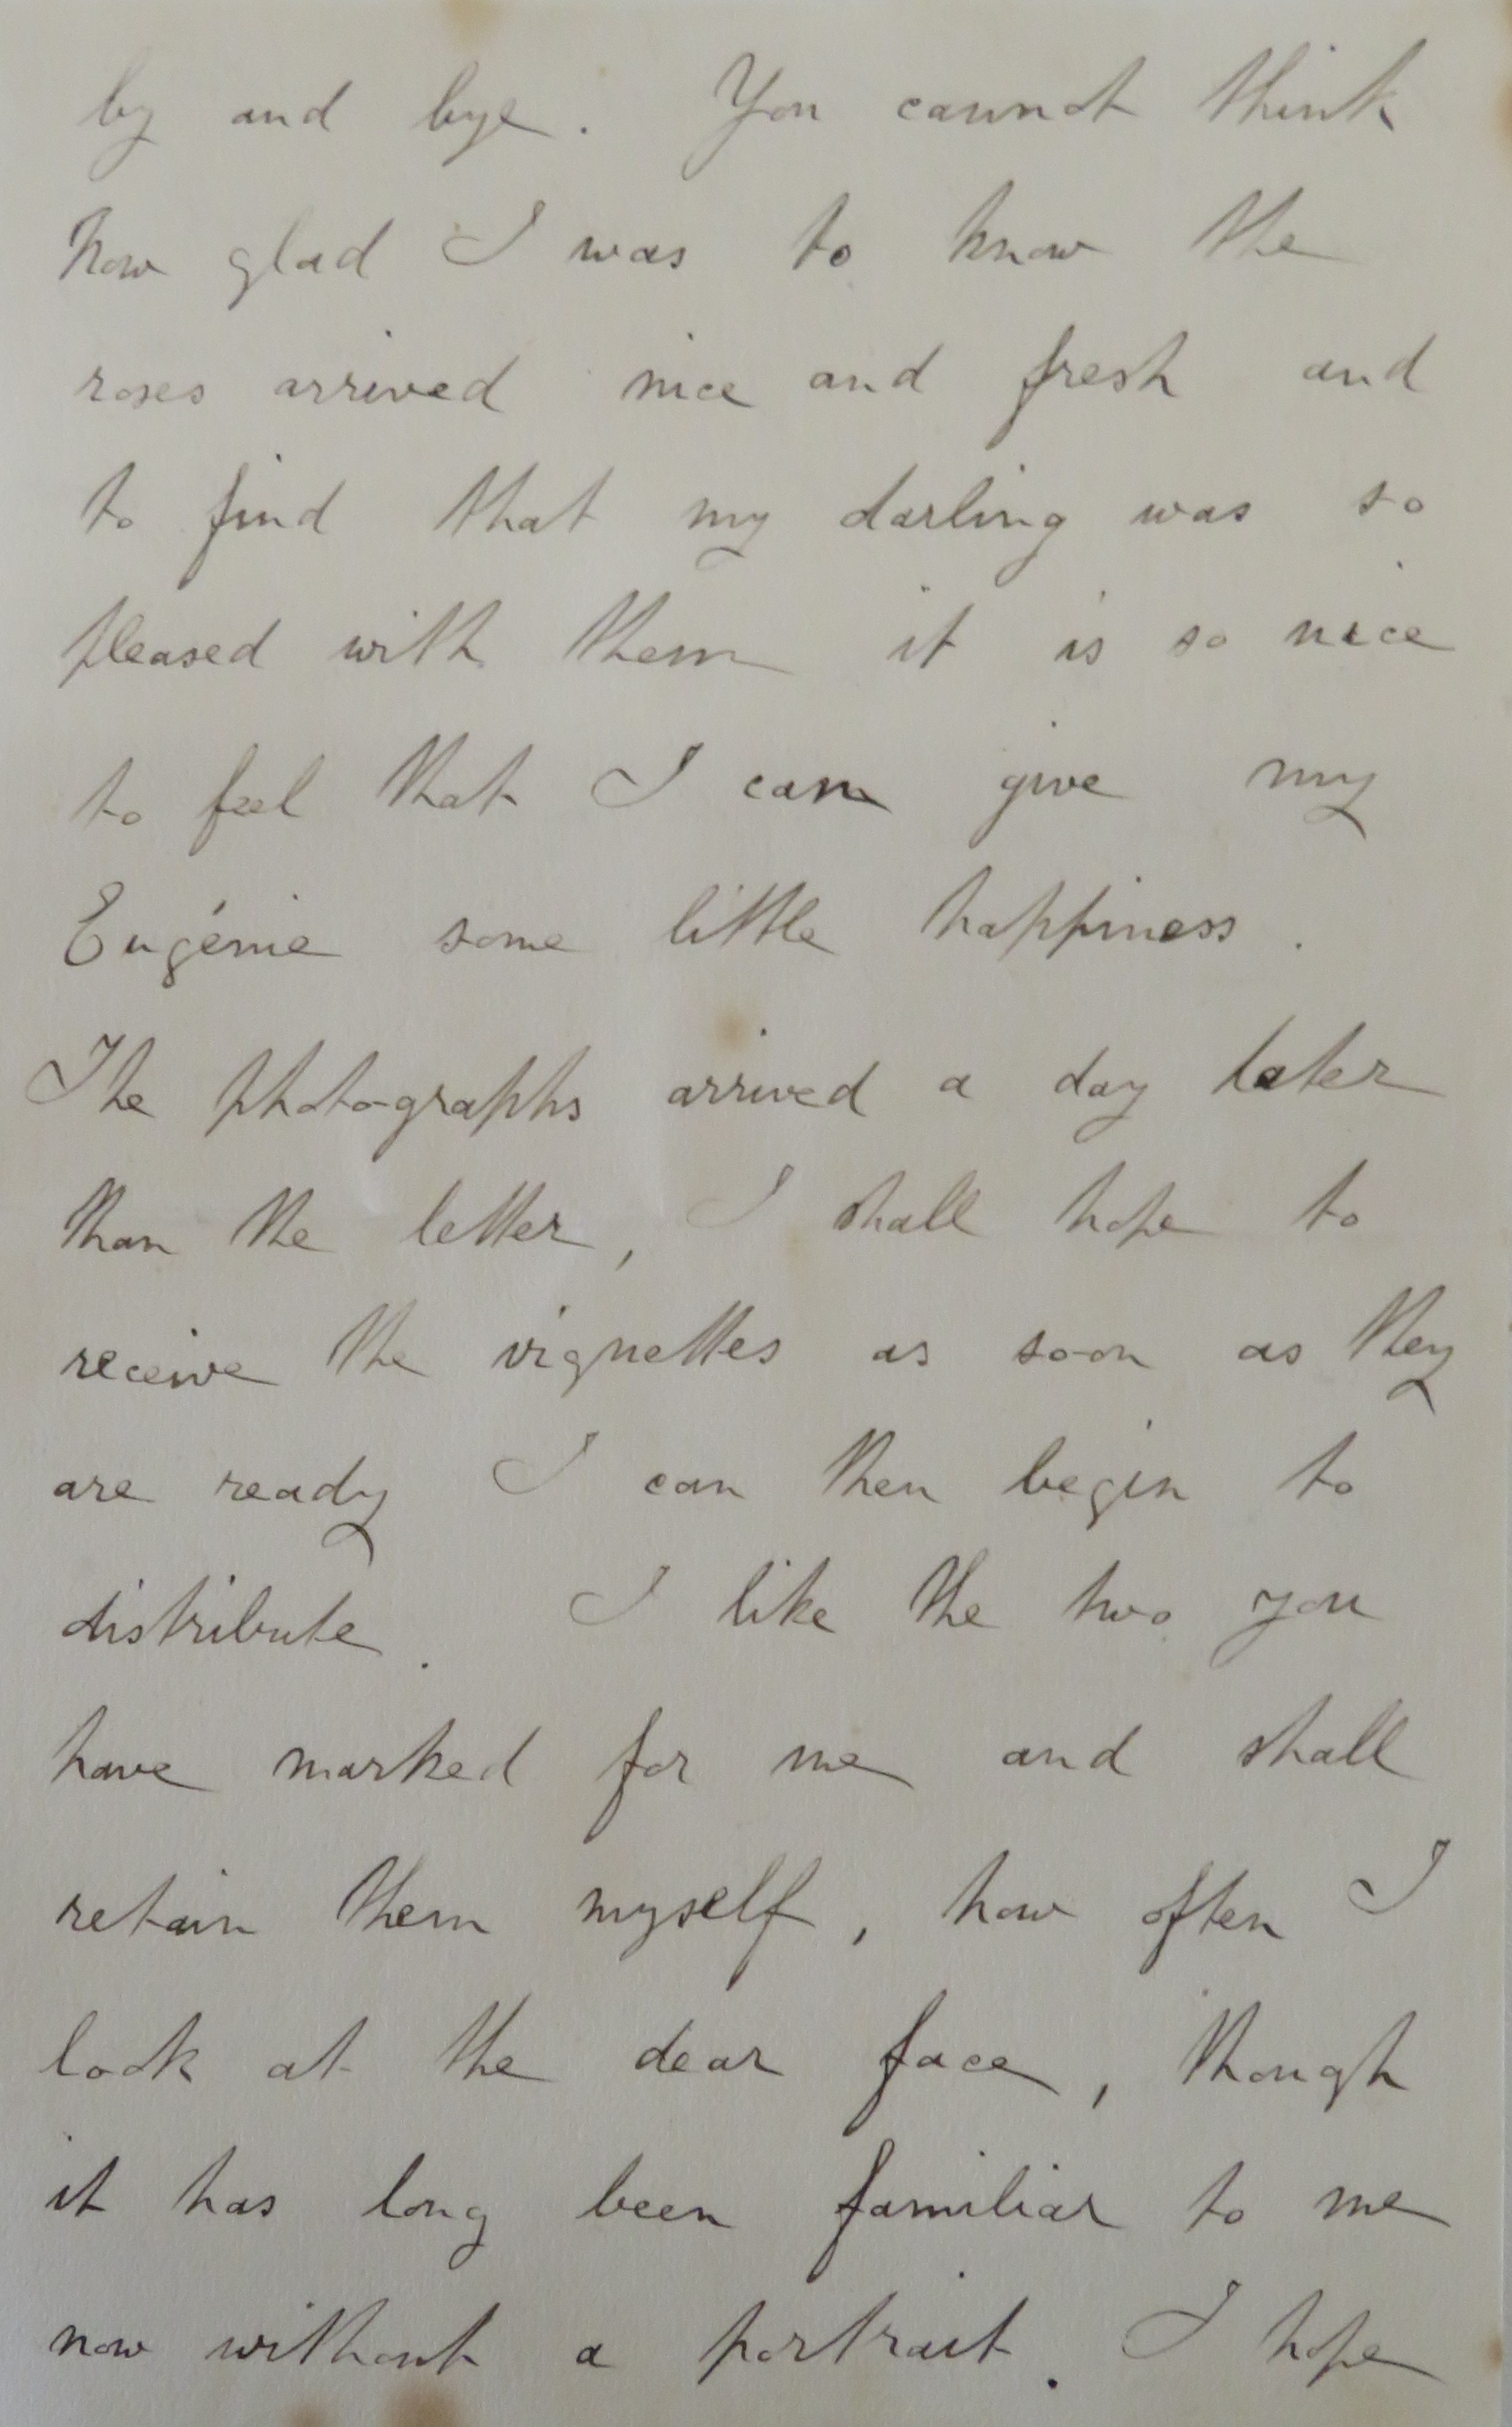 by and bye. You cannot think
how glad I was to know the
roses arrived nice and fresh and
to find that my darling was so
pleased with them it is so nice
to feel that I can give my
Eugénie some little happiness.
The photographs arrived a day later
than the letter, I shall hope to
receive the vignettes as soon as they
are ready I can then begin to
distribute. I like the two you
have marked for me and shall
retain them myself, how often I
look at the dear face, though
it has long been familiar to me
now without a portrait. I hope